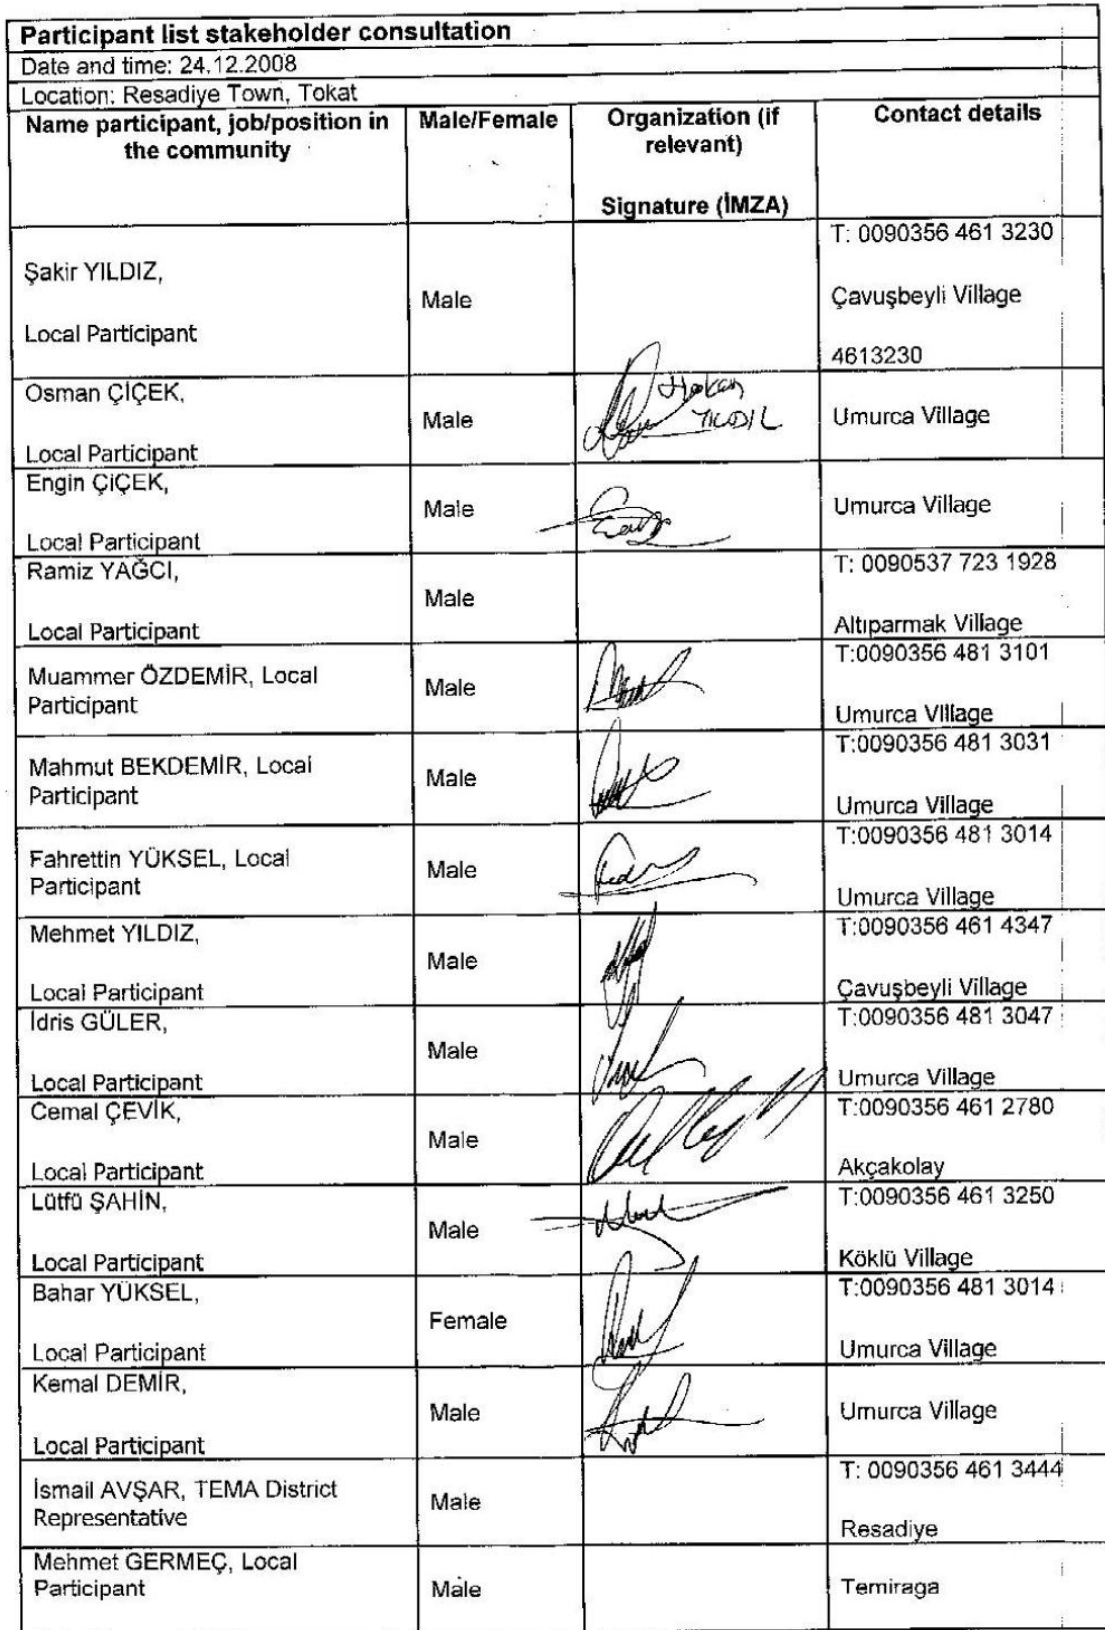 Participant list stakeholder consultation
Date and time: 24.12.2008
Location: Resadiye Town, Tokat
Name participant, job/position in the community
Male/Female
Organization (if relevant)
Signature (İMZA)
Contact details
Şakir YILDIZ,
Local Participant
Male
T: 0090356 461 3230
Çavuşbeyli Village
4613230
Osman ÇİÇEK,
Local Participant
Male
Hakan
Umurca Village
Engin ÇİÇEK,
Local Participant
Male
Umurca Village
Ramiz YAĞCI,
Local Participant
Male
T: 0090537 723 1928
Altıparmak Village
Muammer ÖZDEMİR, Local
Participant
Male
T:0090356 481 3101
Umurca Village
Mahmut BEKDEMİR, Local
Participant
Male
T:0090356 481 3031
Umurca Village
Fahrettin YÜKSEL, Local
Participant
Male
T:0090356 481 3014
Umurca Village
Mehmet YILDIZ,
Local Participant
Male
T:0090356 461 4347
Çavuşbeyli Village
İdris GÜLER,
Local Participant
Male
T:0090356 481 3047
Umurca Village
Cemal ÇEVİK,
Local Participant
Male
T:0090356 461 2780
Akçakolay
Lütfü ŞAHİN,
Local Participant
Male
T:0090356 461 3250
Köklü Village
Bahar YÜKSEL,
Local Participant
Female
T:0090356 481 3014
Umurca Village
Kemal DEMİR,
Local Participant
Male
Umurca Village
İsmail AVŞAR, TEMA District
Representative
Male
T: 0090356 461 3444
Resadiye
Mehmet GERMEÇ, Local
Participant
Male
Temiraga